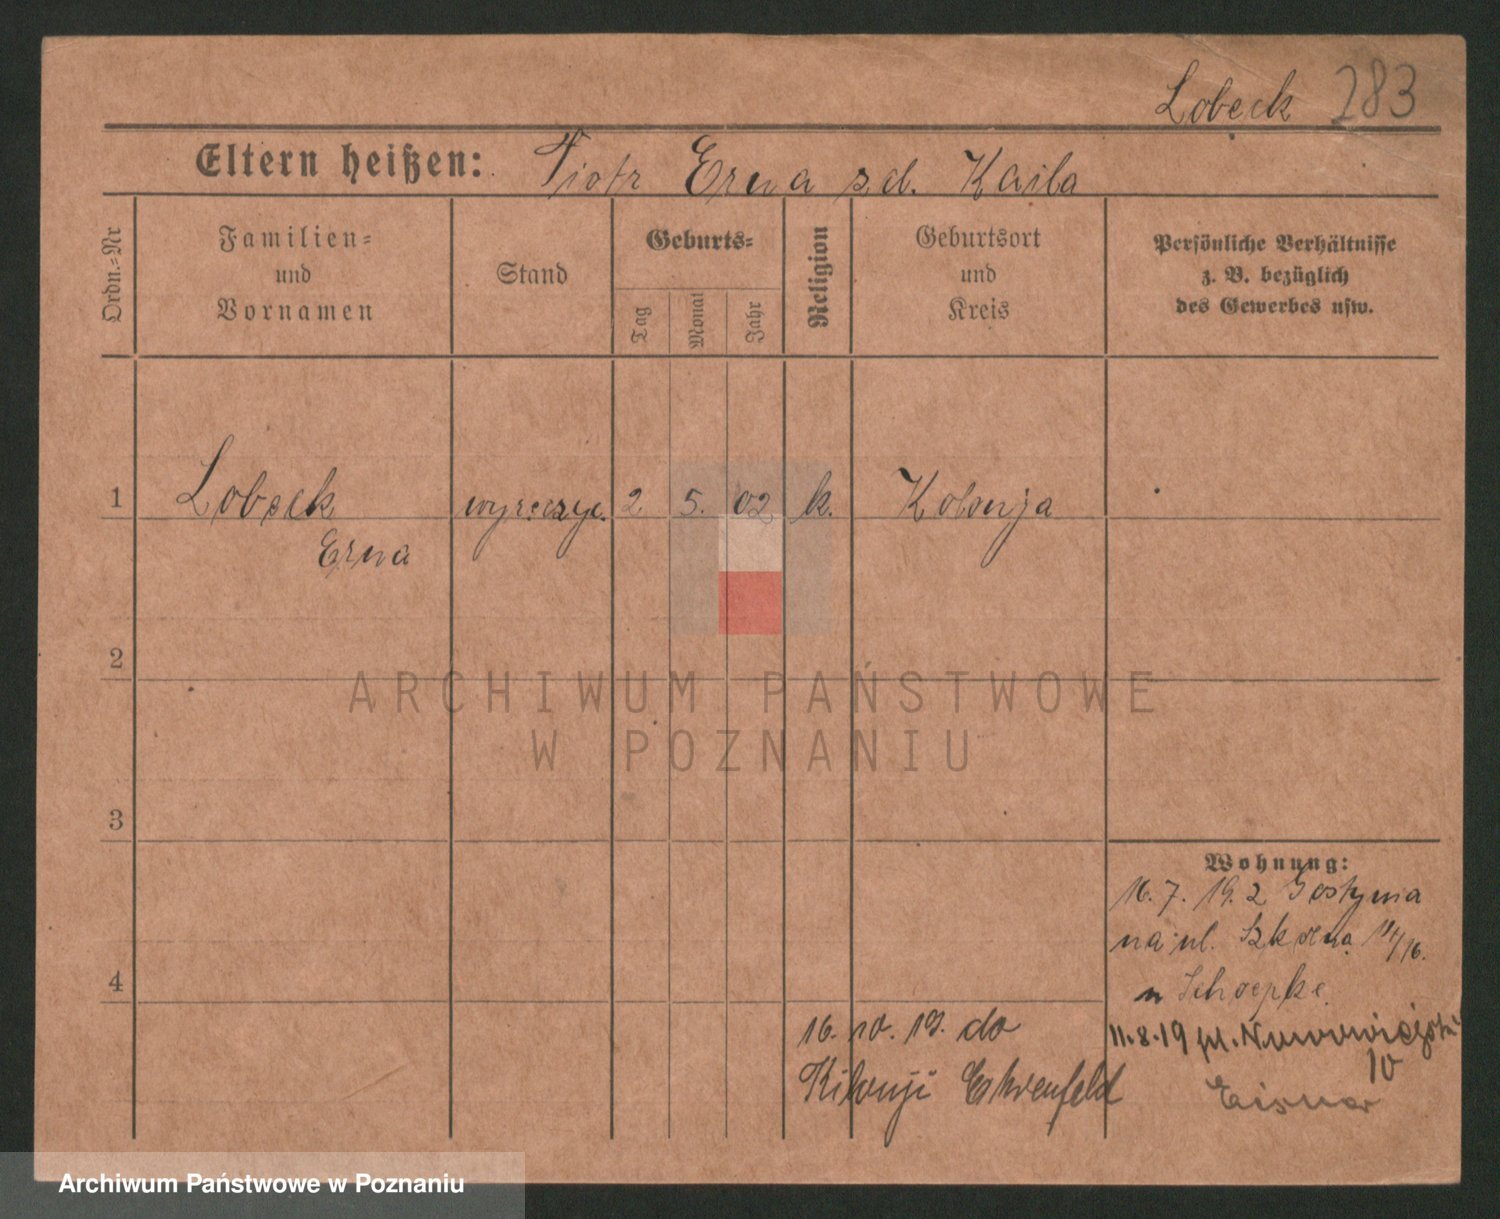 Lobeck 283
Eltern heißen: Piotr Erna zd. Kaila
Ordn.-Nr
Familien-
und
Vornamen
Stand
Geburts-
Tag
Monat
Jahr
Religion
Geburtsort
und
Kreis
Persönliche Verhältnisse
z. B. bezüglich
des Gewerbes usw.
1 Lobeck 2 5. 02 k. Kolonja
Erna
2
ARCHIWUM PAŃSTWOWE
W POZNANIU
3
4
Wohnung:
16. 7. 19. z Gostynia
na ul. Szkolna 11/16.
u Schoepke.
11.8.19 pl. Nowomiejski
10
Eisner
16. 10. 19. do
Kolonji Ehrenfeld
Archiwum Państwowe w Poznaniu